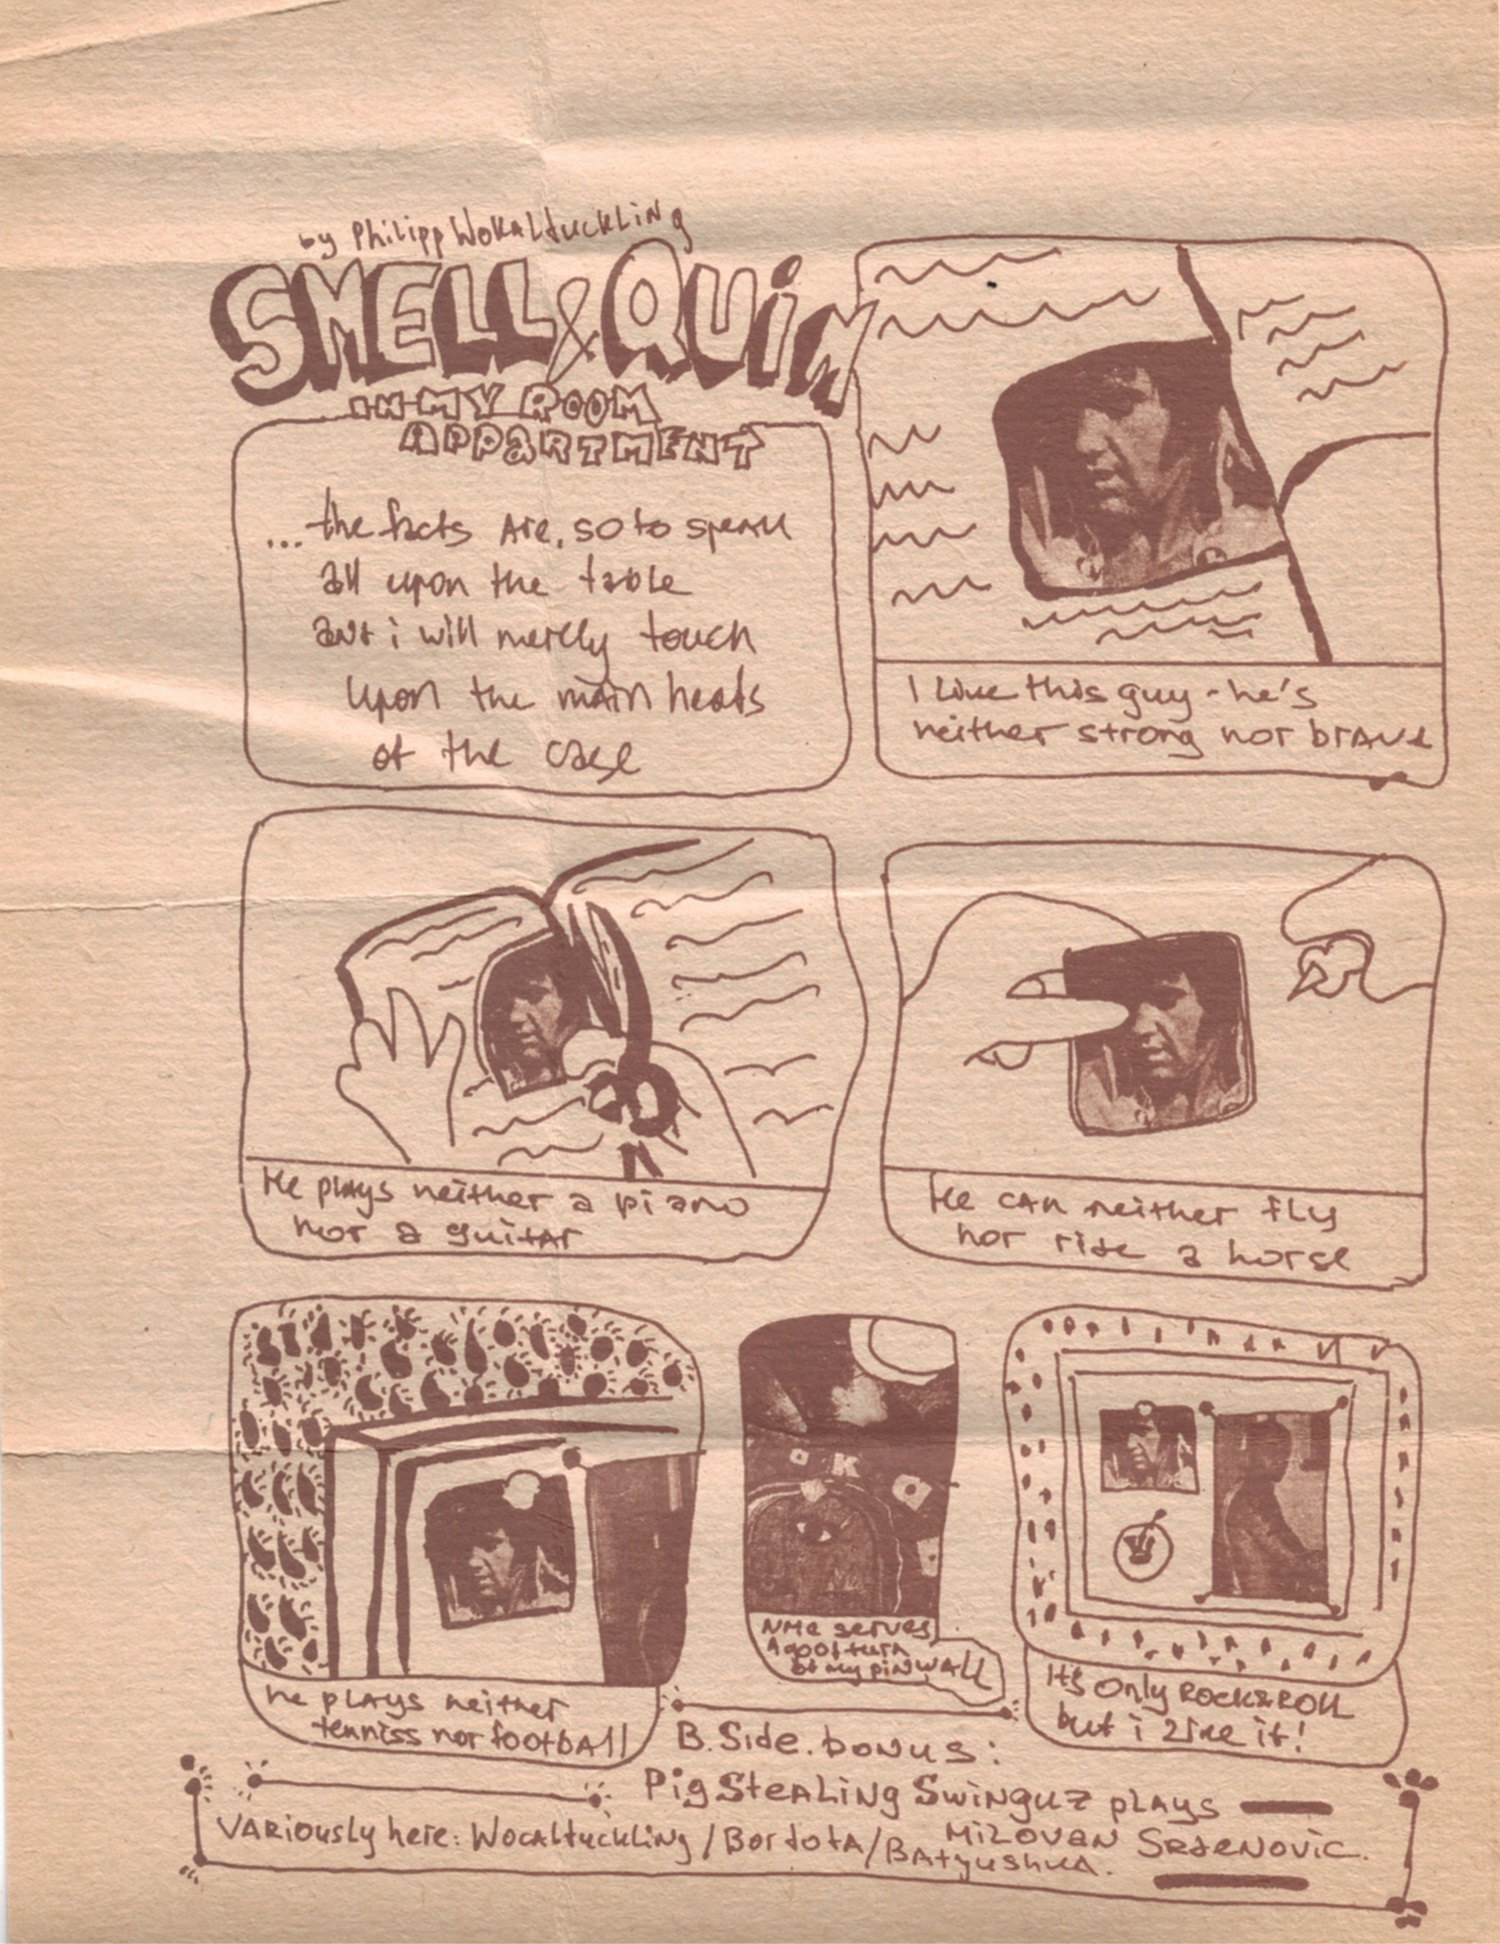 by Philipp Wokaltuckling
SMELL & QUIM
IN MY ROOM
APPARTMENT
...the facts are, so to speak
all upon the table
and i will merely touch
upon the main heads
of the case
I like this guy - he's
neither strong nor brave
He plays neither a piano
nor a guitar
He can neither fly
nor ride a horse
he plays neither
tenniss nor football
OK
NME serves
a good turn
at my pinwall
It's only Rock&Roll
but i like it!
B.Side.bonus:
Pig Stealing Swinguz plays
Milovan Srdenovic.
Variously here: Wocaltuckling / Bordota / Batyushka.